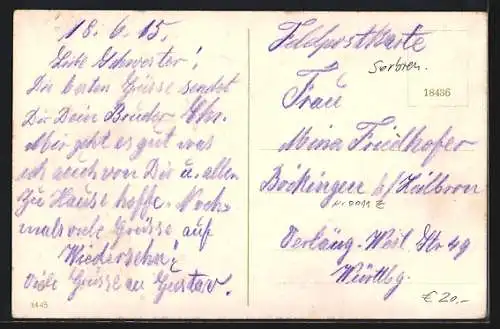 18.6.15.
Liebe Schwester!
Die besten Grüsse sendet
Dir Dein Bruder Chr.
Mir geht es gut was
ich auch von Dir u. allen
zu Hause hoffe. Noch-
mals viele Grüsse auf
Wiedersehn!
Viele Grüsse an Gustav.
1445
Feldpostkarte
Serbien.
18436
Frau
Mina Friedhofer
Böckingen b/Heilbron
Verläng. West. Str 49
Württbg.
€ 20,-